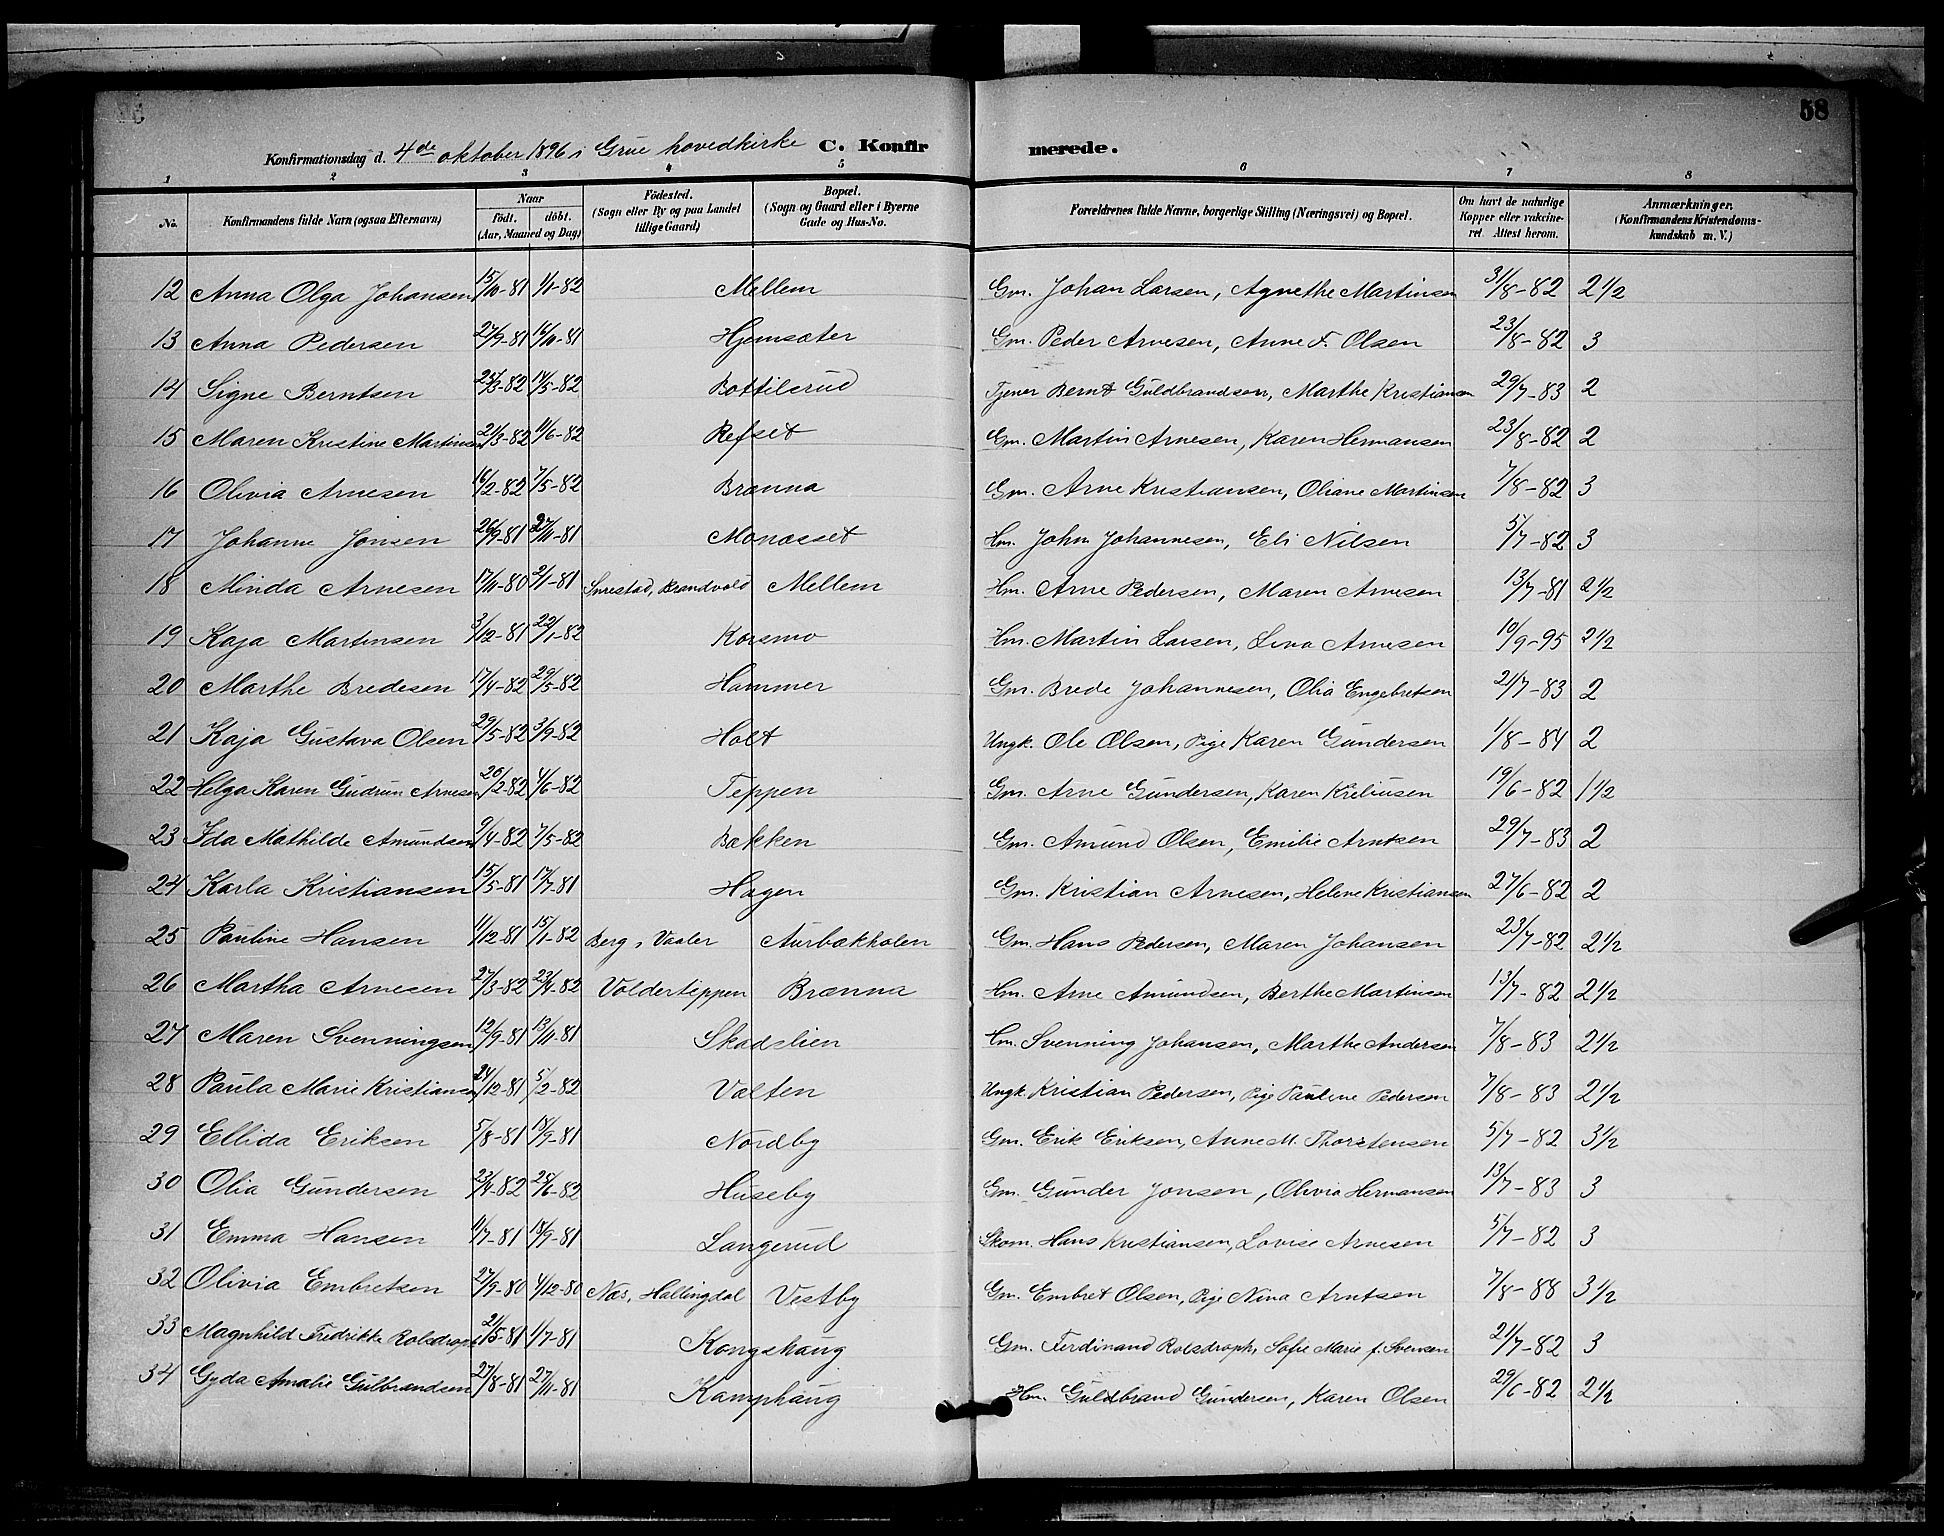 58
Konfirmationsdag d. 4de oktober 1896 i Grue hovedkirke C. Konfirmerede.
1 2 3 4 5 6 7 8
No. Konfirmandens fulde Navn (ogsaa Efternavn) Naar födt. döbt. (Aar, Maaned og Dag) Födested. (Sogn eller By og paa Landet tillige Gaard) Bopæl. (Sogn og Gaard eller i Byerne Gade og Hus-No. Forældrenes fulde Navne, borgerlige Stilling (Næringsvei) og Bopæl. Om havt de naturlige Kopper eller vakcineret. Attest herom. Anmærkninger. (Konfirmandens Kristendomskundskab m. V.)
12 Anna Olga Johansen 15/10-81 1/1-82 Mellem Gm. Johan Larsen, Agnethe Martinsen 31/8-82 2 1/2
13 Anna Pedersen 27/9-81 16/10-81 Hjemsæter Gm. Peder Arnesen, Anne F. Olsen 23/8-82 3
14 Signe Berntsen 25/3-82 14/5-82 Bottilsrud Tjener Bernt Guldbrandsen, Marthe Kristiansen 29/7-83 2
15 Maren Kristine Martinsen 21/3-82 11/6-82 Refset Gm. Martin Arnesen, Karen Hermansen 23/8-82 2
16 Olivia Arnesen 16/2-82 7/5-82 Brænna Gm. Arne Kristiansen, Oliane Martinsen 7/8-82 3
17 Johanne Jonsen 26/9-81 27/11-81 Monasset Hm. John Johannesen, Eli Nilsen 5/7-82 3
18 Minda Arnesen 17/11-80 2/1-81 Snrestad, Brandvold Mellem Hm. Arne Pedersen, Maren Arnesen 13/7-81 2 1/2
19 Kaja Martinsen 3/12-81 22/1-82 Korsmo Hm. Martin Larsen, Lina Arnesen 10/9-95 2 1/2
20 Marthe Bredesen 17/4-82 29/5-82 Hammer Gm. Brede Johannesen, Olia Engebretsen 21/7-83 2
21 Kaja Gustava Olsen 29/5-82 3/9-82 Holt Ungk. Ole Olsen, Pige Karen Gundersen 1/8-84 2
22 Helga Karen Gudrun Arnesen 26/2-82 4/6-82 Teppen Gm. Arne Gundersen, Karen Kreliusen 19/6-82 1 1/2
23 Ida Mathilde Amundsen 9/4-82 7/5-82 Bakken Gm. Amund Olsen, Emilie Arntsen 29/7-83 2
24 Karla Kristiansen 15/5-81 17/7-81 Hagen Gm. Kristian Arnesen, Helene Kristiansen 27/6-82 2
25 Pauline Hansen 11/12-81 15/1-82 Berg, Vaaler Aurbakholen Gm. Hans Pedersen, Maren Johansen 23/7-82 2 1/2
26 Martha Arnesen 27/3-82 23/4-82 Voldertippen Brænna Hm. Arne Amundsen, Berthe Martinsen 13/7-82 2 1/2
27 Maren Svenningsen 12/9-81 13/11-81 Skadslien Hm. Svenning Johansen, Marthe Andersen 7/8-83 2 1/2
28 Paula Marie Kristiansen 24/12-81 5/2-82 Valten Ungk. Kristian Pedersen, Pige Pauline Pedersen 7/8-83 2 1/2
29 Ellida Eriksen 5/8-81 18/9-81 Nordby Gm. Erik Eriksen, Anne M. Thorstensen 5/7-82 3 1/2
30 Olia Gundersen 23/4-82 25/6-82 Huseby Gm. Gunder Jonsen, Olivia Hermansen 13/7-83 3
31 Emma Hansen 11/7-81 18/9-81 Langerud Skom. Hans Kristiansen, Lovise Arnesen 5/7-82 3
32 Olivia Embretsen 27/9-80 4/12-80 Næs, Hallingdal Vestby Gm. Embret Olsen, Pige Nina Arntsen 7/8-88 3 1/2
33 Magnhild Fredrikke Rolsdroph 21/5-81 1/7-81 Kongshaug Gm. Ferdinand Rolsdroph, Sofie Marie f. Svensen 21/7-82 3
34 Gyda Amalie Gulbrandsen 27/8-81 27/11-81 Kamphaug Hm. Guldbrand Gundersen, Karen Olsen 29/6-82 2 1/2